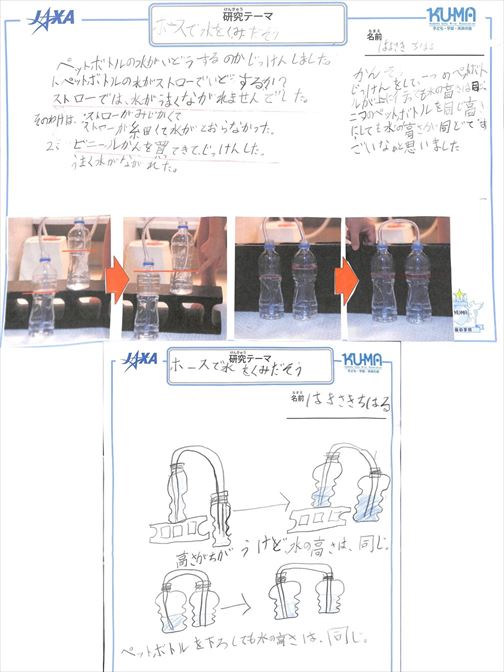 JAXA
けんきゅう
研究テーマ
ホースで水をくみだそう
KUMA
子ども・宇宙・未来の会
なまえ
名前
はまさきちはる
ペットボトルの水がいどうするのかじっけんしました。
1、ペットボトルの水がストローでいどうするか?
ストローでは、水がうまくながれませんでした。
そのわけは、ストローがみじかくて
ストローが細くて水がとおらなかった。
2、ビニールかんを買てきて、じっけんした。
うまく水がながれた。
かんそう
じっけんをして、一つのペットボト
ルが上に
二つのペットボトルを同じ高さ
にしても水の高さが同じです
ごいなぁと思いました
KUMA
JAXA
けんきゅう
研究テーマ
ホースで水をくみだそう
KUMA
子ども・宇宙・未来の会
なまえ
名前
はまさきちはる
高さがちがうけど水の高さは、同じ。
ペットボトルを下ろしても水の高さは、同じ。